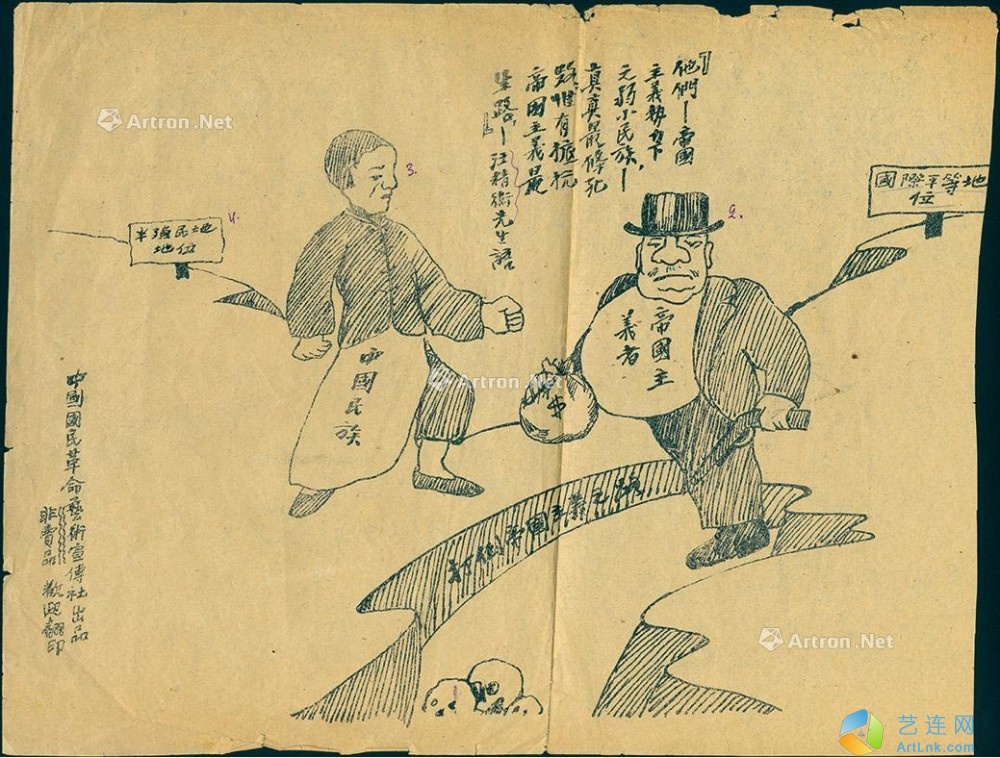 「他們—帝國
主義勢力下
之弱小民族，—
真真是條死
路，惟有抵抗
帝國主義是
生路。」—汪精衛先生語
國際平等地
位
2.
3.
4.
半殖民地
地位
帝國主
義者
中國民族
打倒帝國主義之路
1
中國國民革命藝術宣傳社出品
非賣品 歡迎翻印
Artron.Net
Artron.Net
Artron.Net
Artron.Net
艺连网
ArtLnk.com